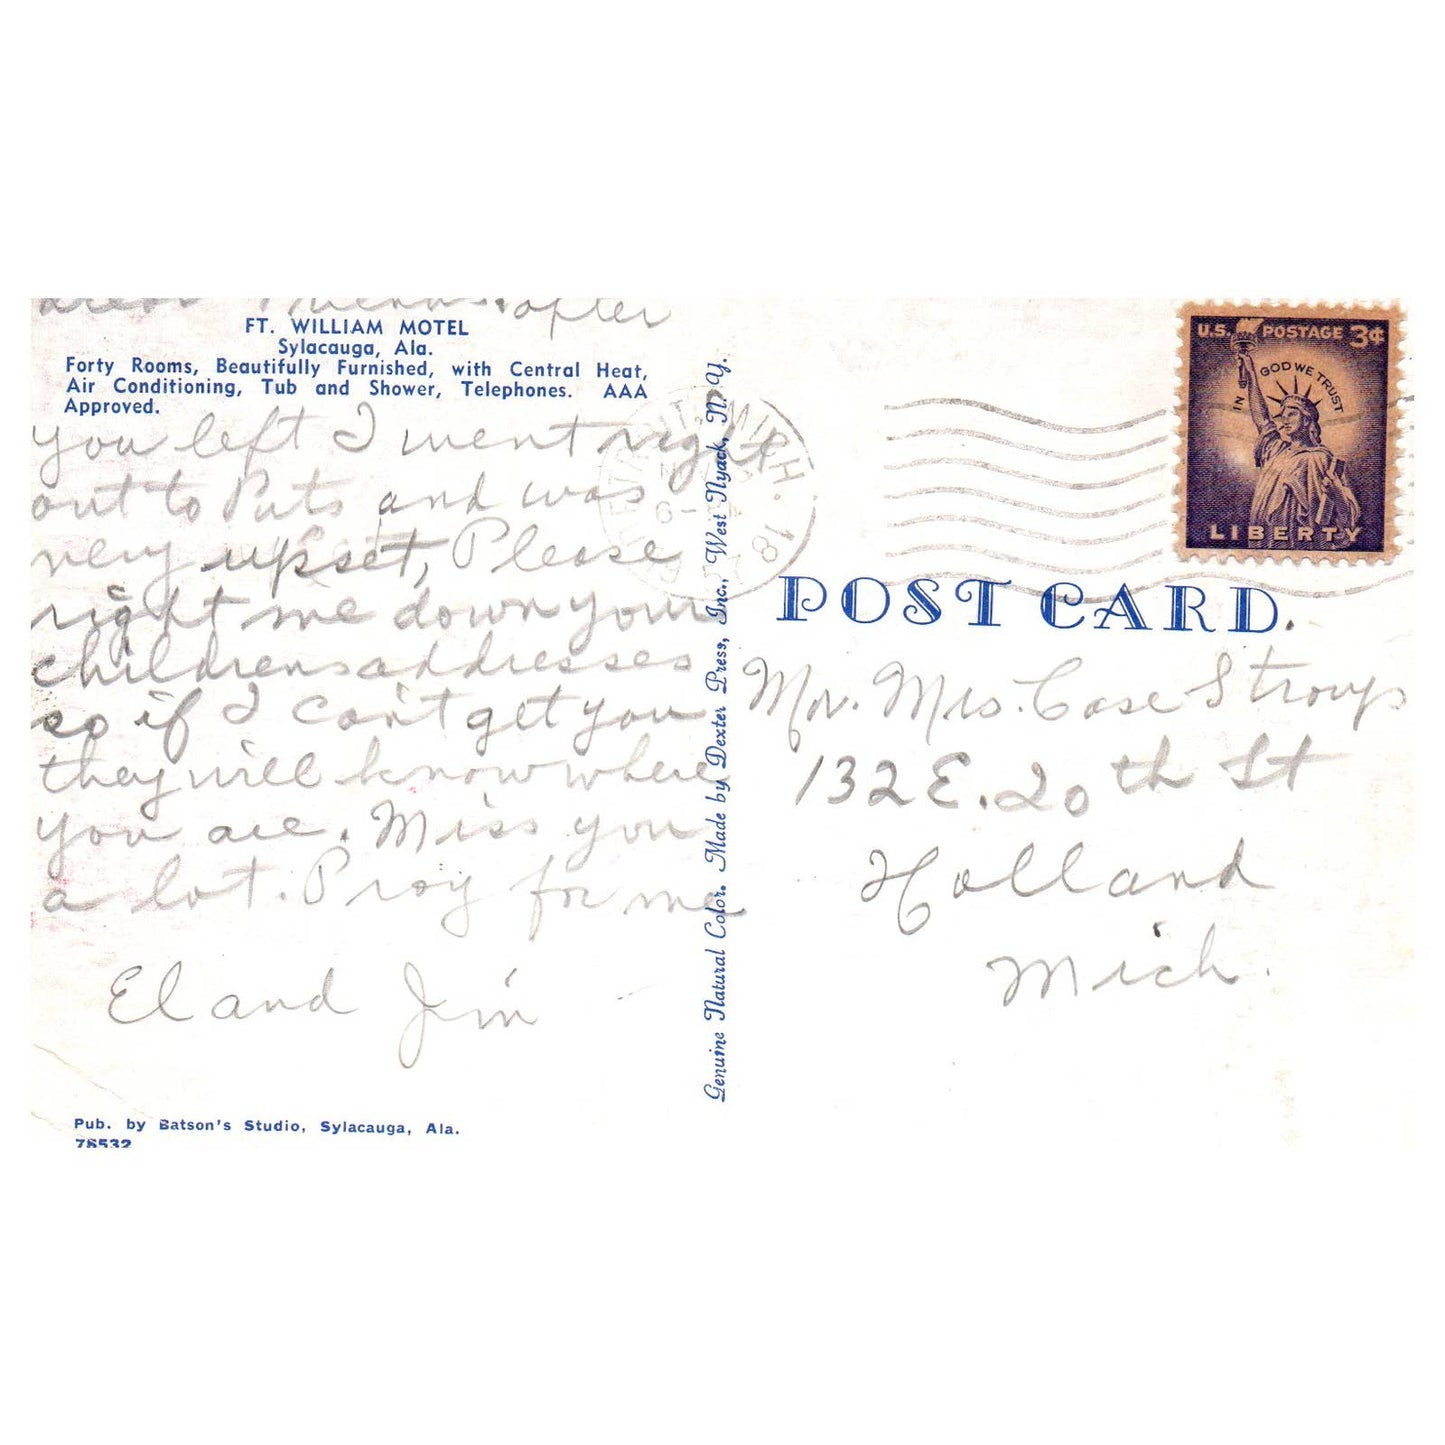 Dear Friends. after
FT. WILLIAM MOTEL
Sylacauga, Ala.
Forty Rooms, Beautifully Furnished, with Central Heat,
Air Conditioning, Tub and Shower, Telephones. AAA
Approved.
you left I went right
out to Puts and was
very upset, Please
right me down your
childrens addresses
so if I can't get you
they will know where
you are. Miss you
a lot. Pray for me
El and Jim
Pub. by Batson's Studio, Sylacauga, Ala.
78532
Genuine Natural Color. Made by Dexter Press, Inc., West Nyack, N. Y.
MICH.
U.S. POSTAGE 3¢
IN GOD WE TRUST
LIBERTY
POST CARD.
Mr. Mrs. Case Stroup
132 E. 20th St
Holland
Mich.